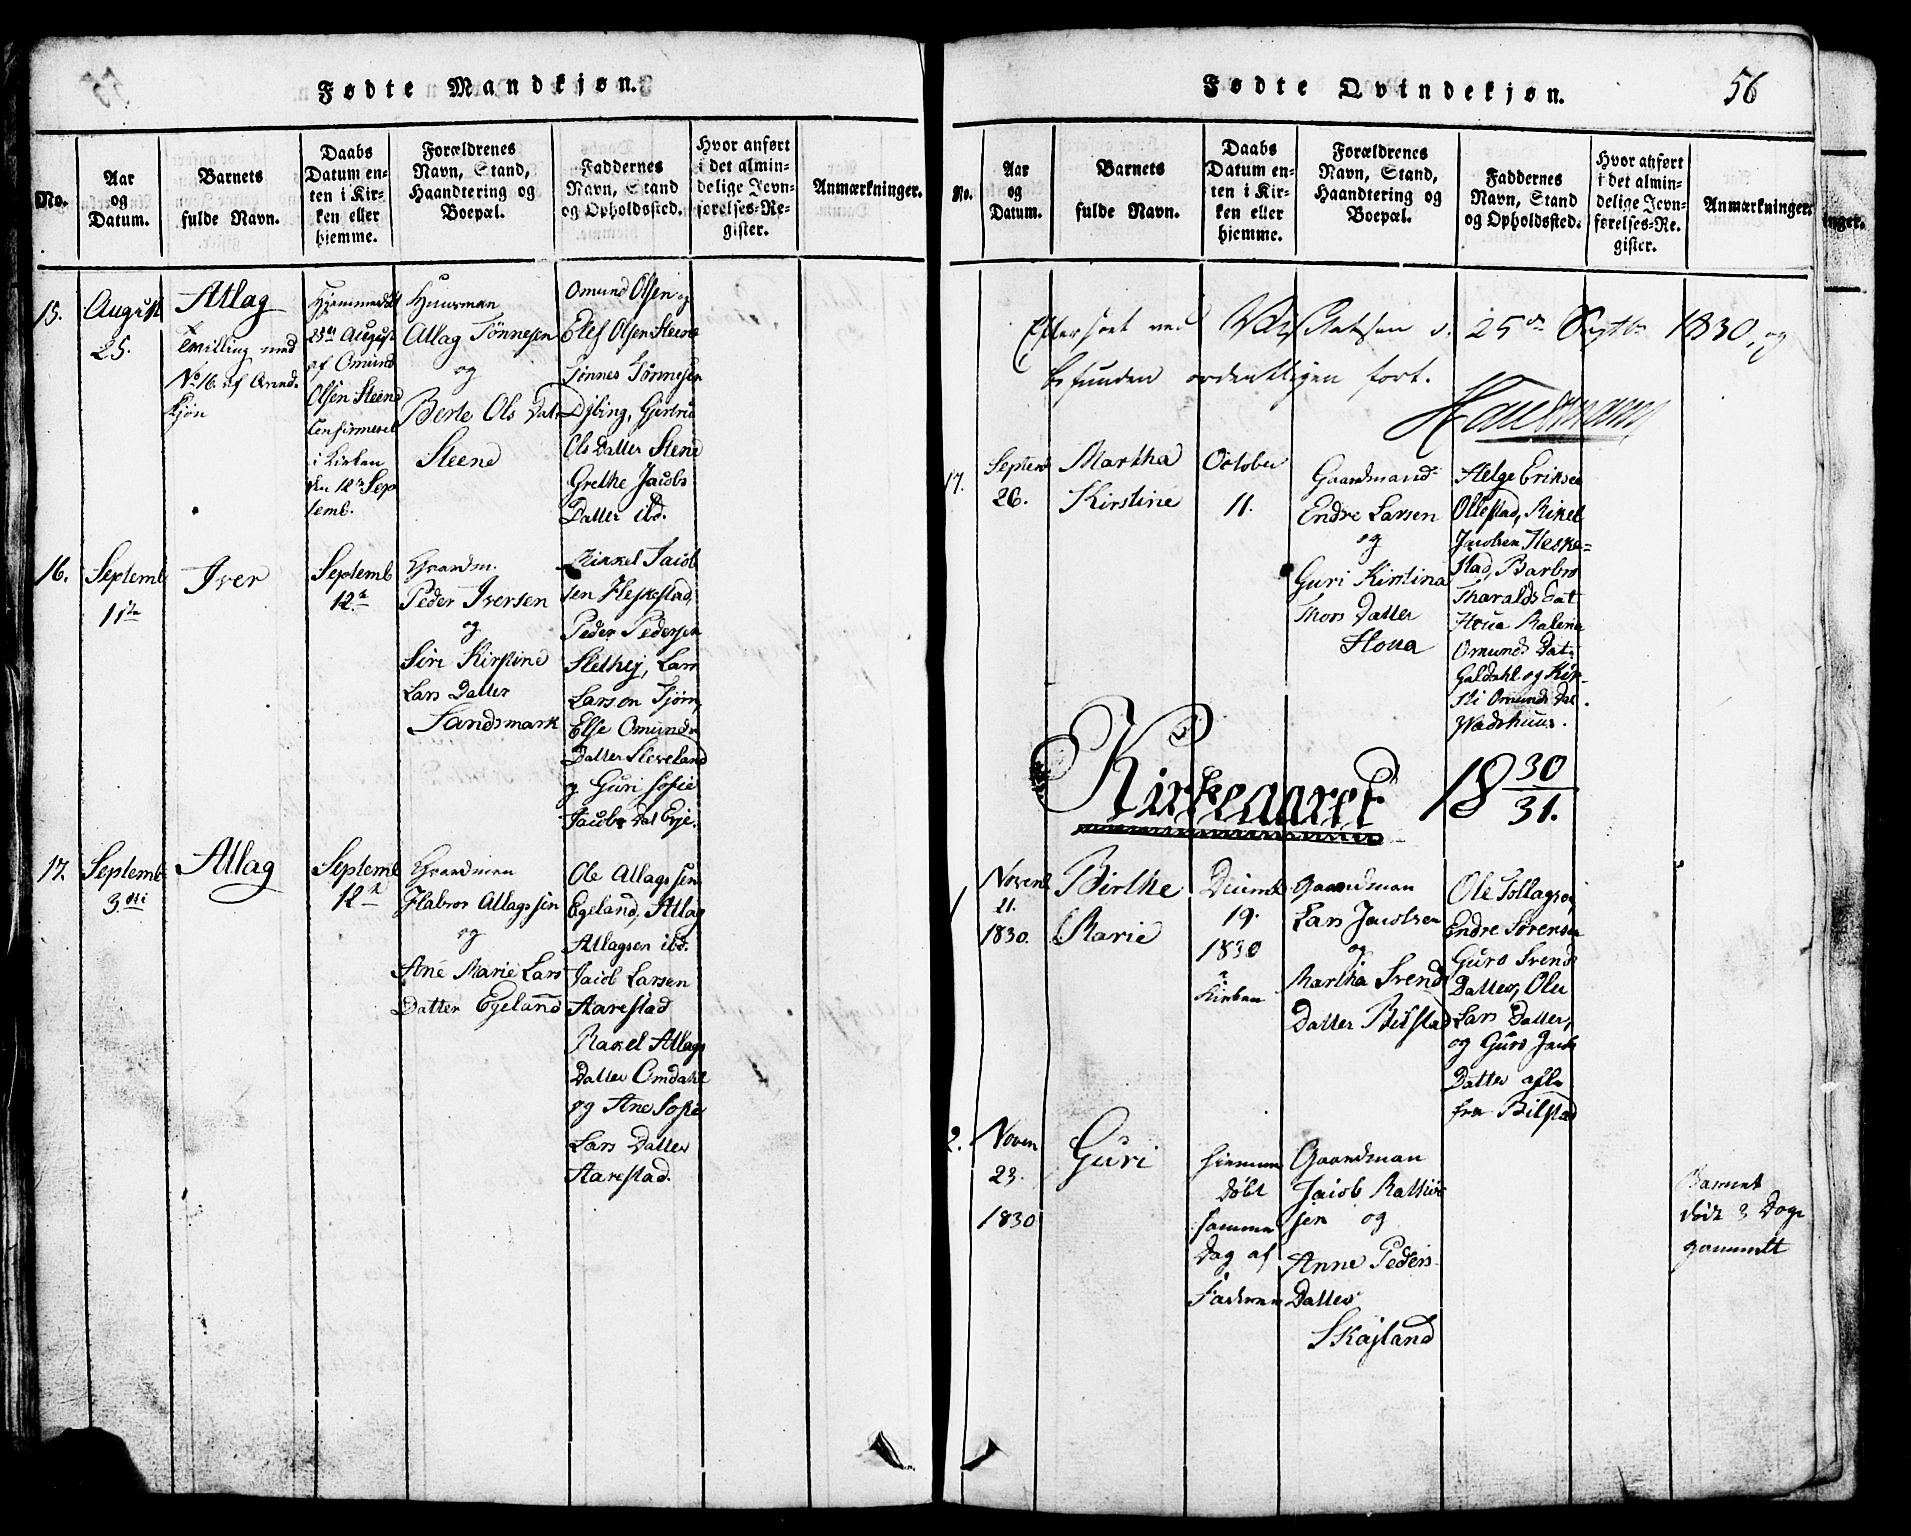 Fødte Mandkjøn.
No.
Aar
og
Datum.
Barnets
fulde Navn.
Daabs
Datum en-
ten i Kir-
ken eller
hjemme.
Forældrenes
Navn, Stand,
Haandtering og
Boepæl.
Faddernes
Navn, Stand
og Opholdssted.
Hvor anført
i det almin-
delige Jevn-
førelses-Re-
gister.
Anmærkninger.
15.
August
25.
Atlag
Tvilling med
No 16. af Qvind-
kjøn
Hjemmedøbt
25de August
af Omund
Olsen Steene
Confirmeret
i Kirken
den 12te Sep
temb.
Huusman
Atlag Tønnesen
og
Berte Ols Datr
Steene
Omund Olsen og
Elef Olsen Steene
Tønnes Tønnesen
Dybing, Gjertru
Ols Datter Steene
Grethe Jacobs
Datter ibd.
16.
Septemb
1ste
Iver
Septemb
12te
Gaardm.
Peder Iversen
og
Siri Kirstine
Lars Datter
Sandsmark
Mikkel Jacob
sen Heskestad,
Peder Pedersen
Slethej, Lars
Larsen Tjørn,
Else Omunds
Datter Sleveland
og Guri Sofie
Jacobs Dat Eeje.
17.
Septemb
3die
Atlag
Septemb
12te
Gaardman
Halvor Atlagssen
og
Ane Marie Lars
Datter Egeland
Ole Atlagssen
Egeland, Atlag
Atlagsen ibd.
Jacob Larsen
Aarestad
Rakel Atlags
Datter Omdahl
og Ane Sofie
Lars Datter
Aarestad.
Fødte Qvindekjøn.
56
No.
Aar
og
Datum.
Barnets
fulde Navn.
Daabs
Datum en-
ten i Kir-
ken eller
hjemme.
Forældrenes
Navn, Stand,
Haandtering og
Boepæl.
Faddernes
Navn, Stand
og Opholdssted.
Hvor anført
i det almin-
delige Jevn-
førelses-Re-
gister.
Anmærkninger.
Efterseet ved Visitatsen d. 25de Septbr 1830, og
befunden ordentligen fört.
17.
Septem
26.
Martha
Kirstine
October
11.
Gaardmand
Endre Larsen
og
Guri Kirstina
Thors Datter
Houa
Helge Eriksen
Ollestad, Mikel
Jacobsen Heske-
stad, Barbro
Tharalds Dat
Houa Malene
Omunds Dat.
Galdahl og Kir-
sti Omunds Dat.
Wadshuus.
Kirkeaaret 18 30/31.
1
Novemb
21.
1830.
Birthe
Marie
Decemb
19.
1830
i
Kirken
Gaardman
Lars Jacobsen
og
Martha Svends
Datter Bilstad
Ole Tollagsen,
Endre Sørensen
Guro Svends
Datter,
Lars Datter,
og Guro Jacobs
Datter alle
fra Bilstad
2.
Novem
23.
1830
Guri
hjemme
døbt
samme
Dag af
Faderen
Gaardsman
Jacob
sen og
Anne Peders
Datter
Skajland
Barnet
død 3 Dage
gammelt